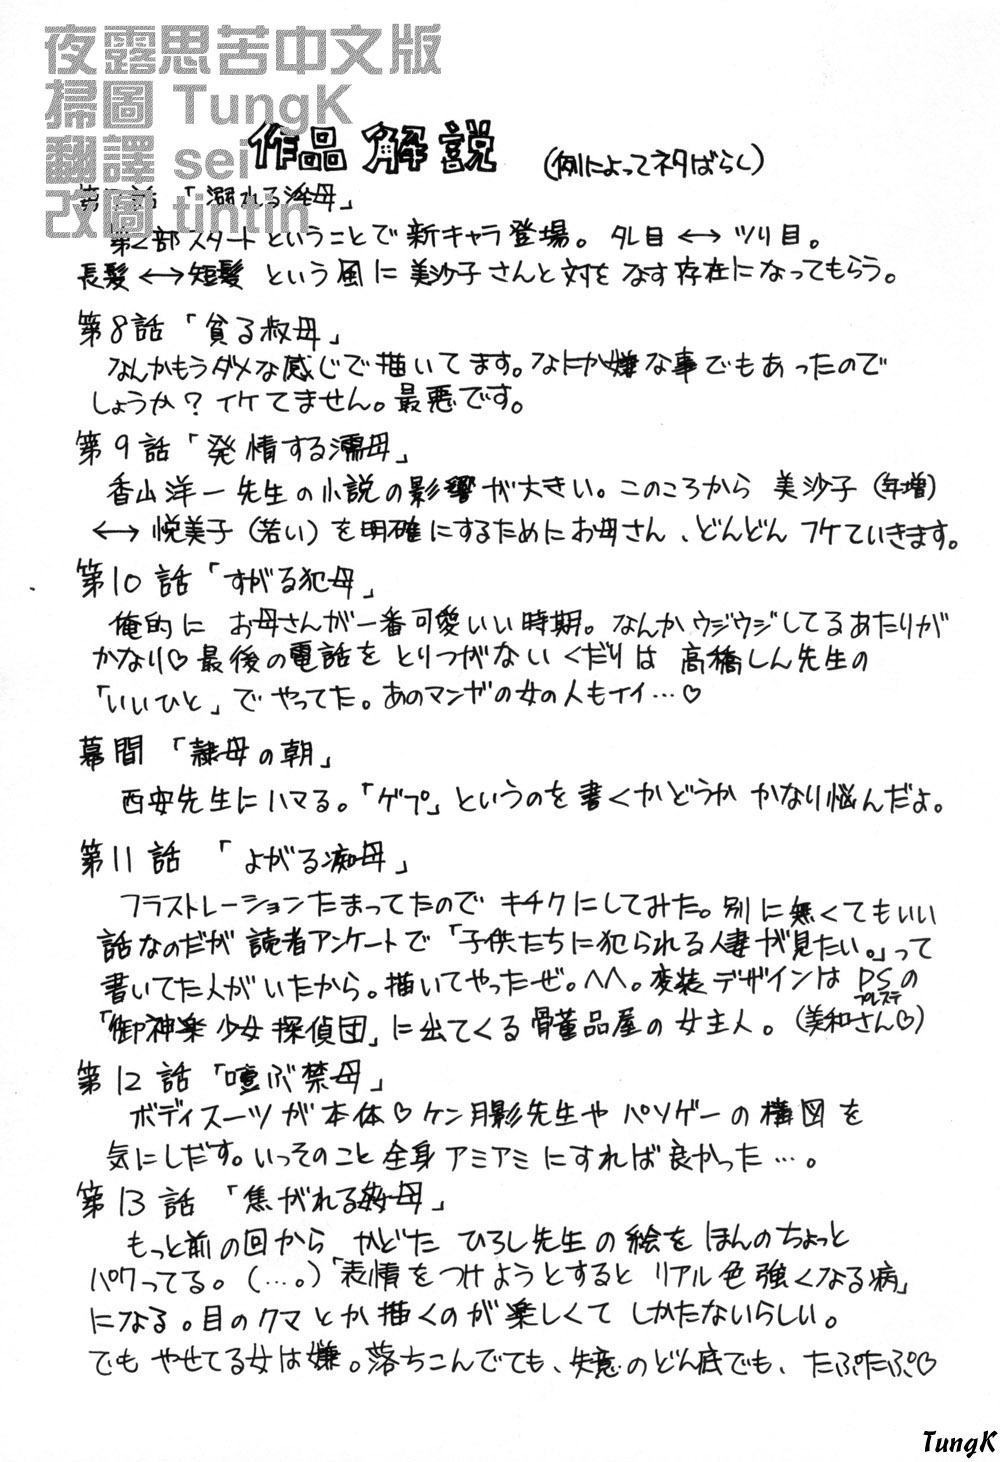 夜露思苦中文版
掃圖 TungK
翻譯 sei
改圖 tintin
作品解説 (例によってネタばらし)
第7話「溺れる淫母」
第2部スタートということで新キャラ登場。タレ目 ←→ ツリ目。
長髪 ←→ 短髪 という風に美沙子さんと対をなす存在になってもらう。
第8話「貪る叔母」
なんかもうダメな感じで描いてます。なにか嫌な事でもあったので
しょうか?イケてません。最悪です。
第9話「発情する濡母」
香山洋一先生の小説の影響が大きい。このころから 美沙子(年増)
←→ 悦美子(若い)を明確にするためにお母さん、どんどんフケていきます。
第10話「すがる犯母」
俺的に お母さんが一番可愛いい時期。なんかウジウジしてるあたりが
かなり♡最後の電話をとりつがないくだりは 高橋しん先生の
「いいひと」でやってた。あのマンガの女の人もイイ…♡
幕間「隷母の朝」
西安先生にハマる。「ゲプ」というのを書くかどうか かなり悩んだよ。
第11話 「よがる痴母」
フラストレーションたまってたので キチクにしてみた。別に無くてもいい
話なのだが読者アンケートで「子供たちに犯られる人妻が見たい。」って
書いてた人がいたから。描いてやったぜ。^^。変装デザインは PSの
プレステ
「御神楽少女探偵団」に出てくる骨董品屋の女主人。(美和さん♡)
第12話「喧ぶ禁母」
ボディスーツが本体♡ケン月影先生や パソゲーの構図を
気にしだす。いっそのこと全身アミアミにすれば良かった…。
第13話 「焦がれる姦母」
もっと前の回から かどた ひろし先生の絵をほんのちょっと
パクってる。(…。)「表情をつけようとすると リアル色強くなる病」
になる。目のクマとか描くのが楽しくてしかたないらしい。
でもやせてる女は嫌。落ちこんでても、失意のどん底でも、たぷたぷ♡
TungK